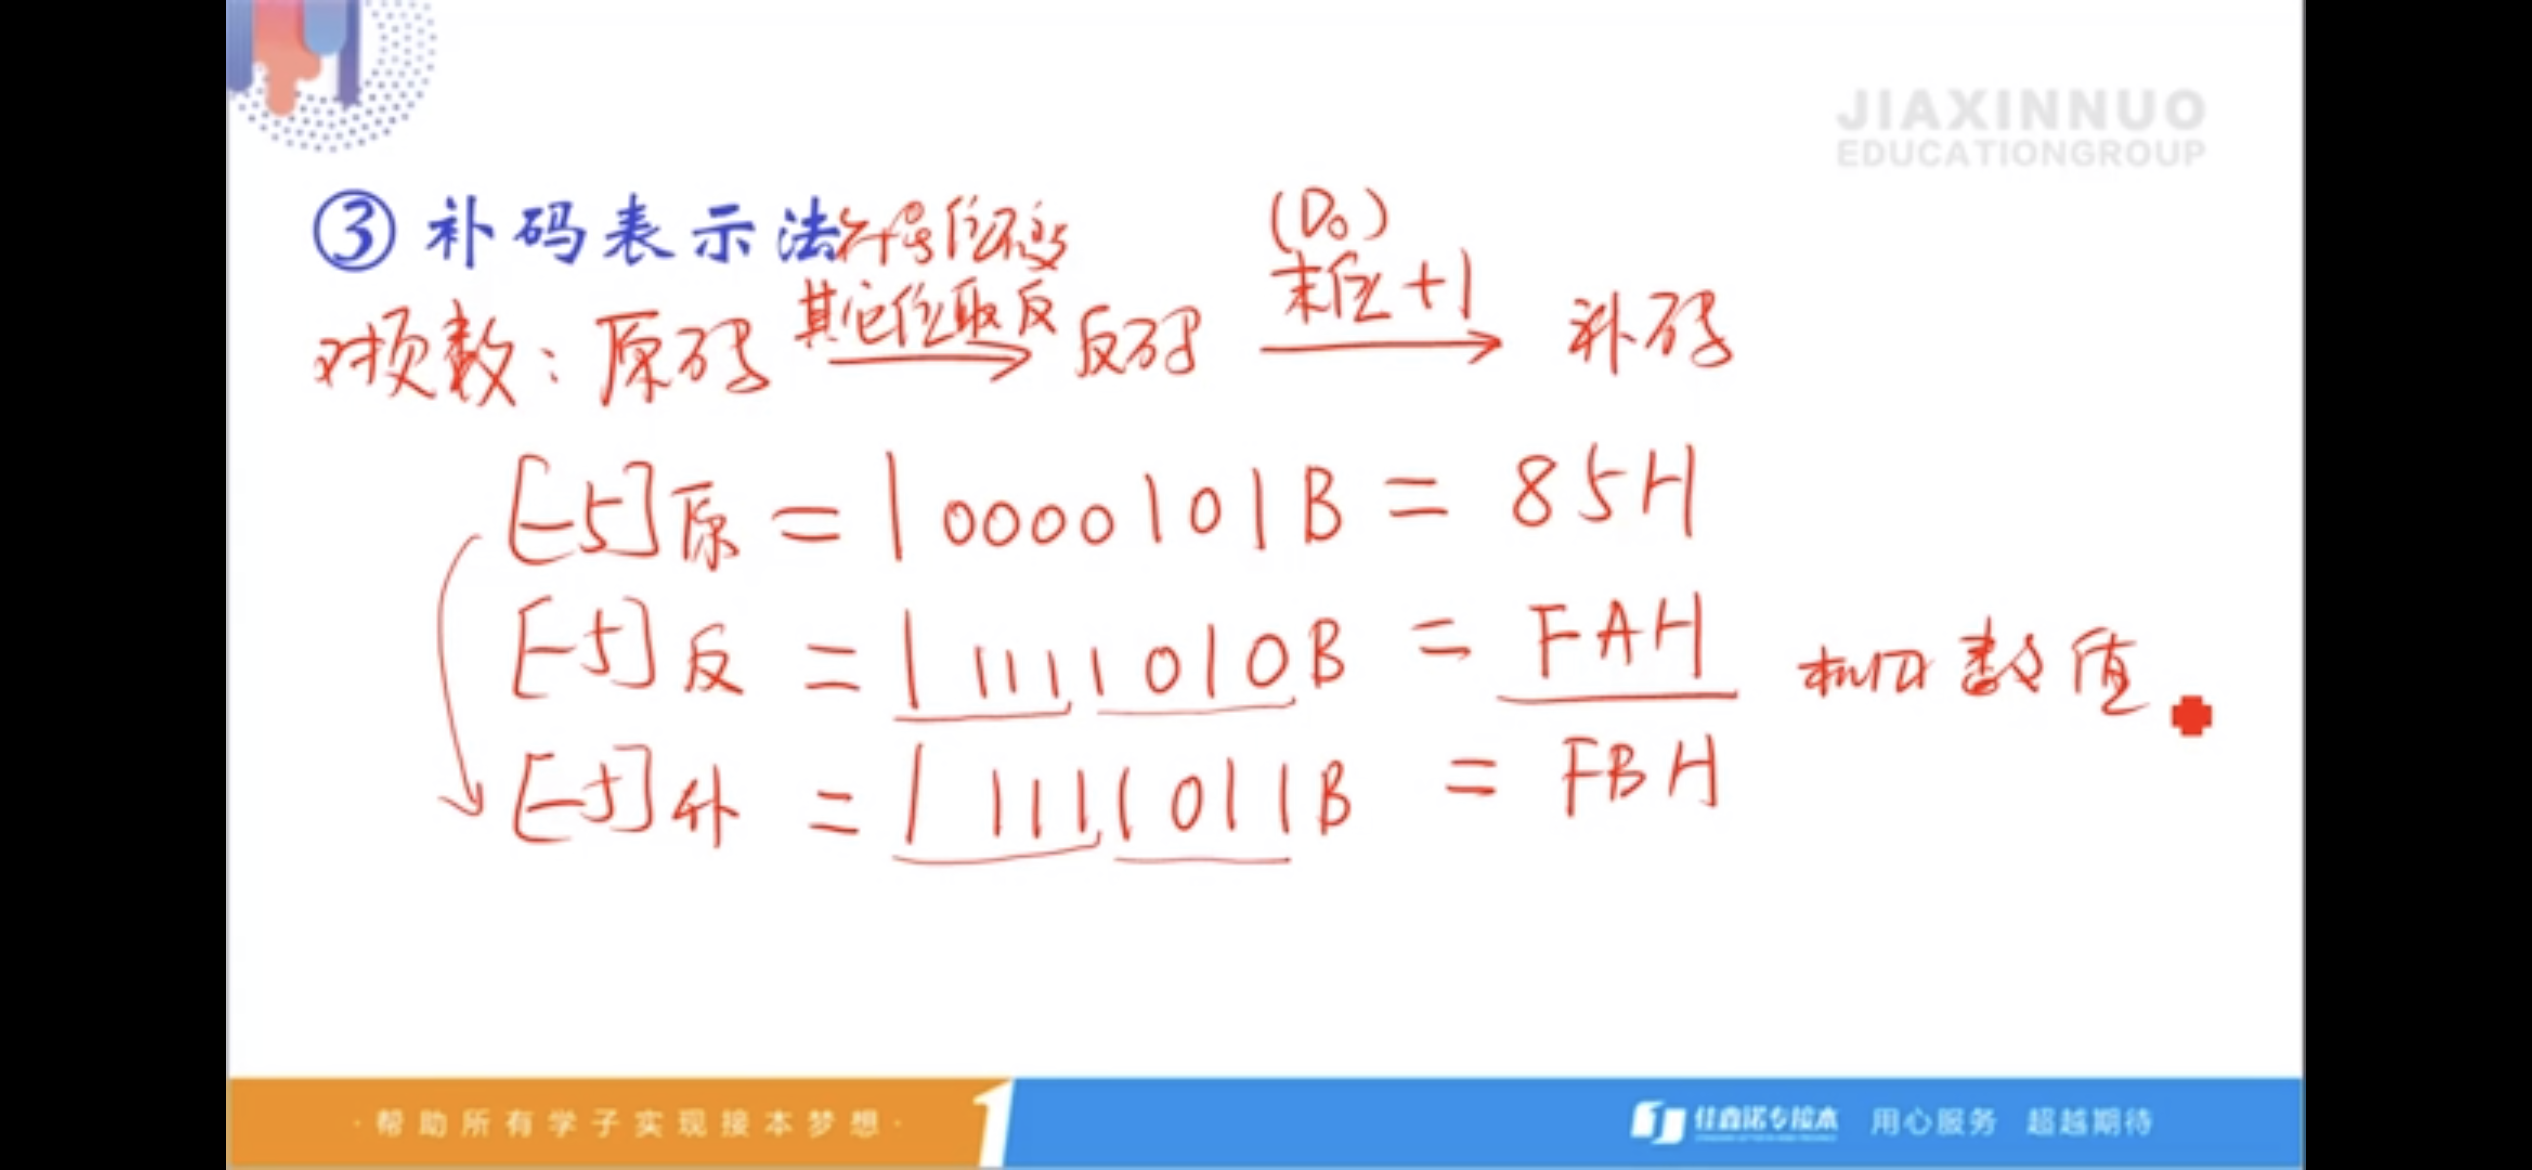 JIAXINNUO
EDUCATIONGROUP
③ 补码表示法 符号位不变 (D₀)
对负数：原码 其它位取反 反码 末位+1 补码
[-5]原 = 10000101B = 85H
[-5]反 = 11111010B = FAH 机内数值
[-5]补 = 11111011B = FBH
·帮助所有学子实现接本梦想·
佳鑫诺专接本 用心服务 超越期待